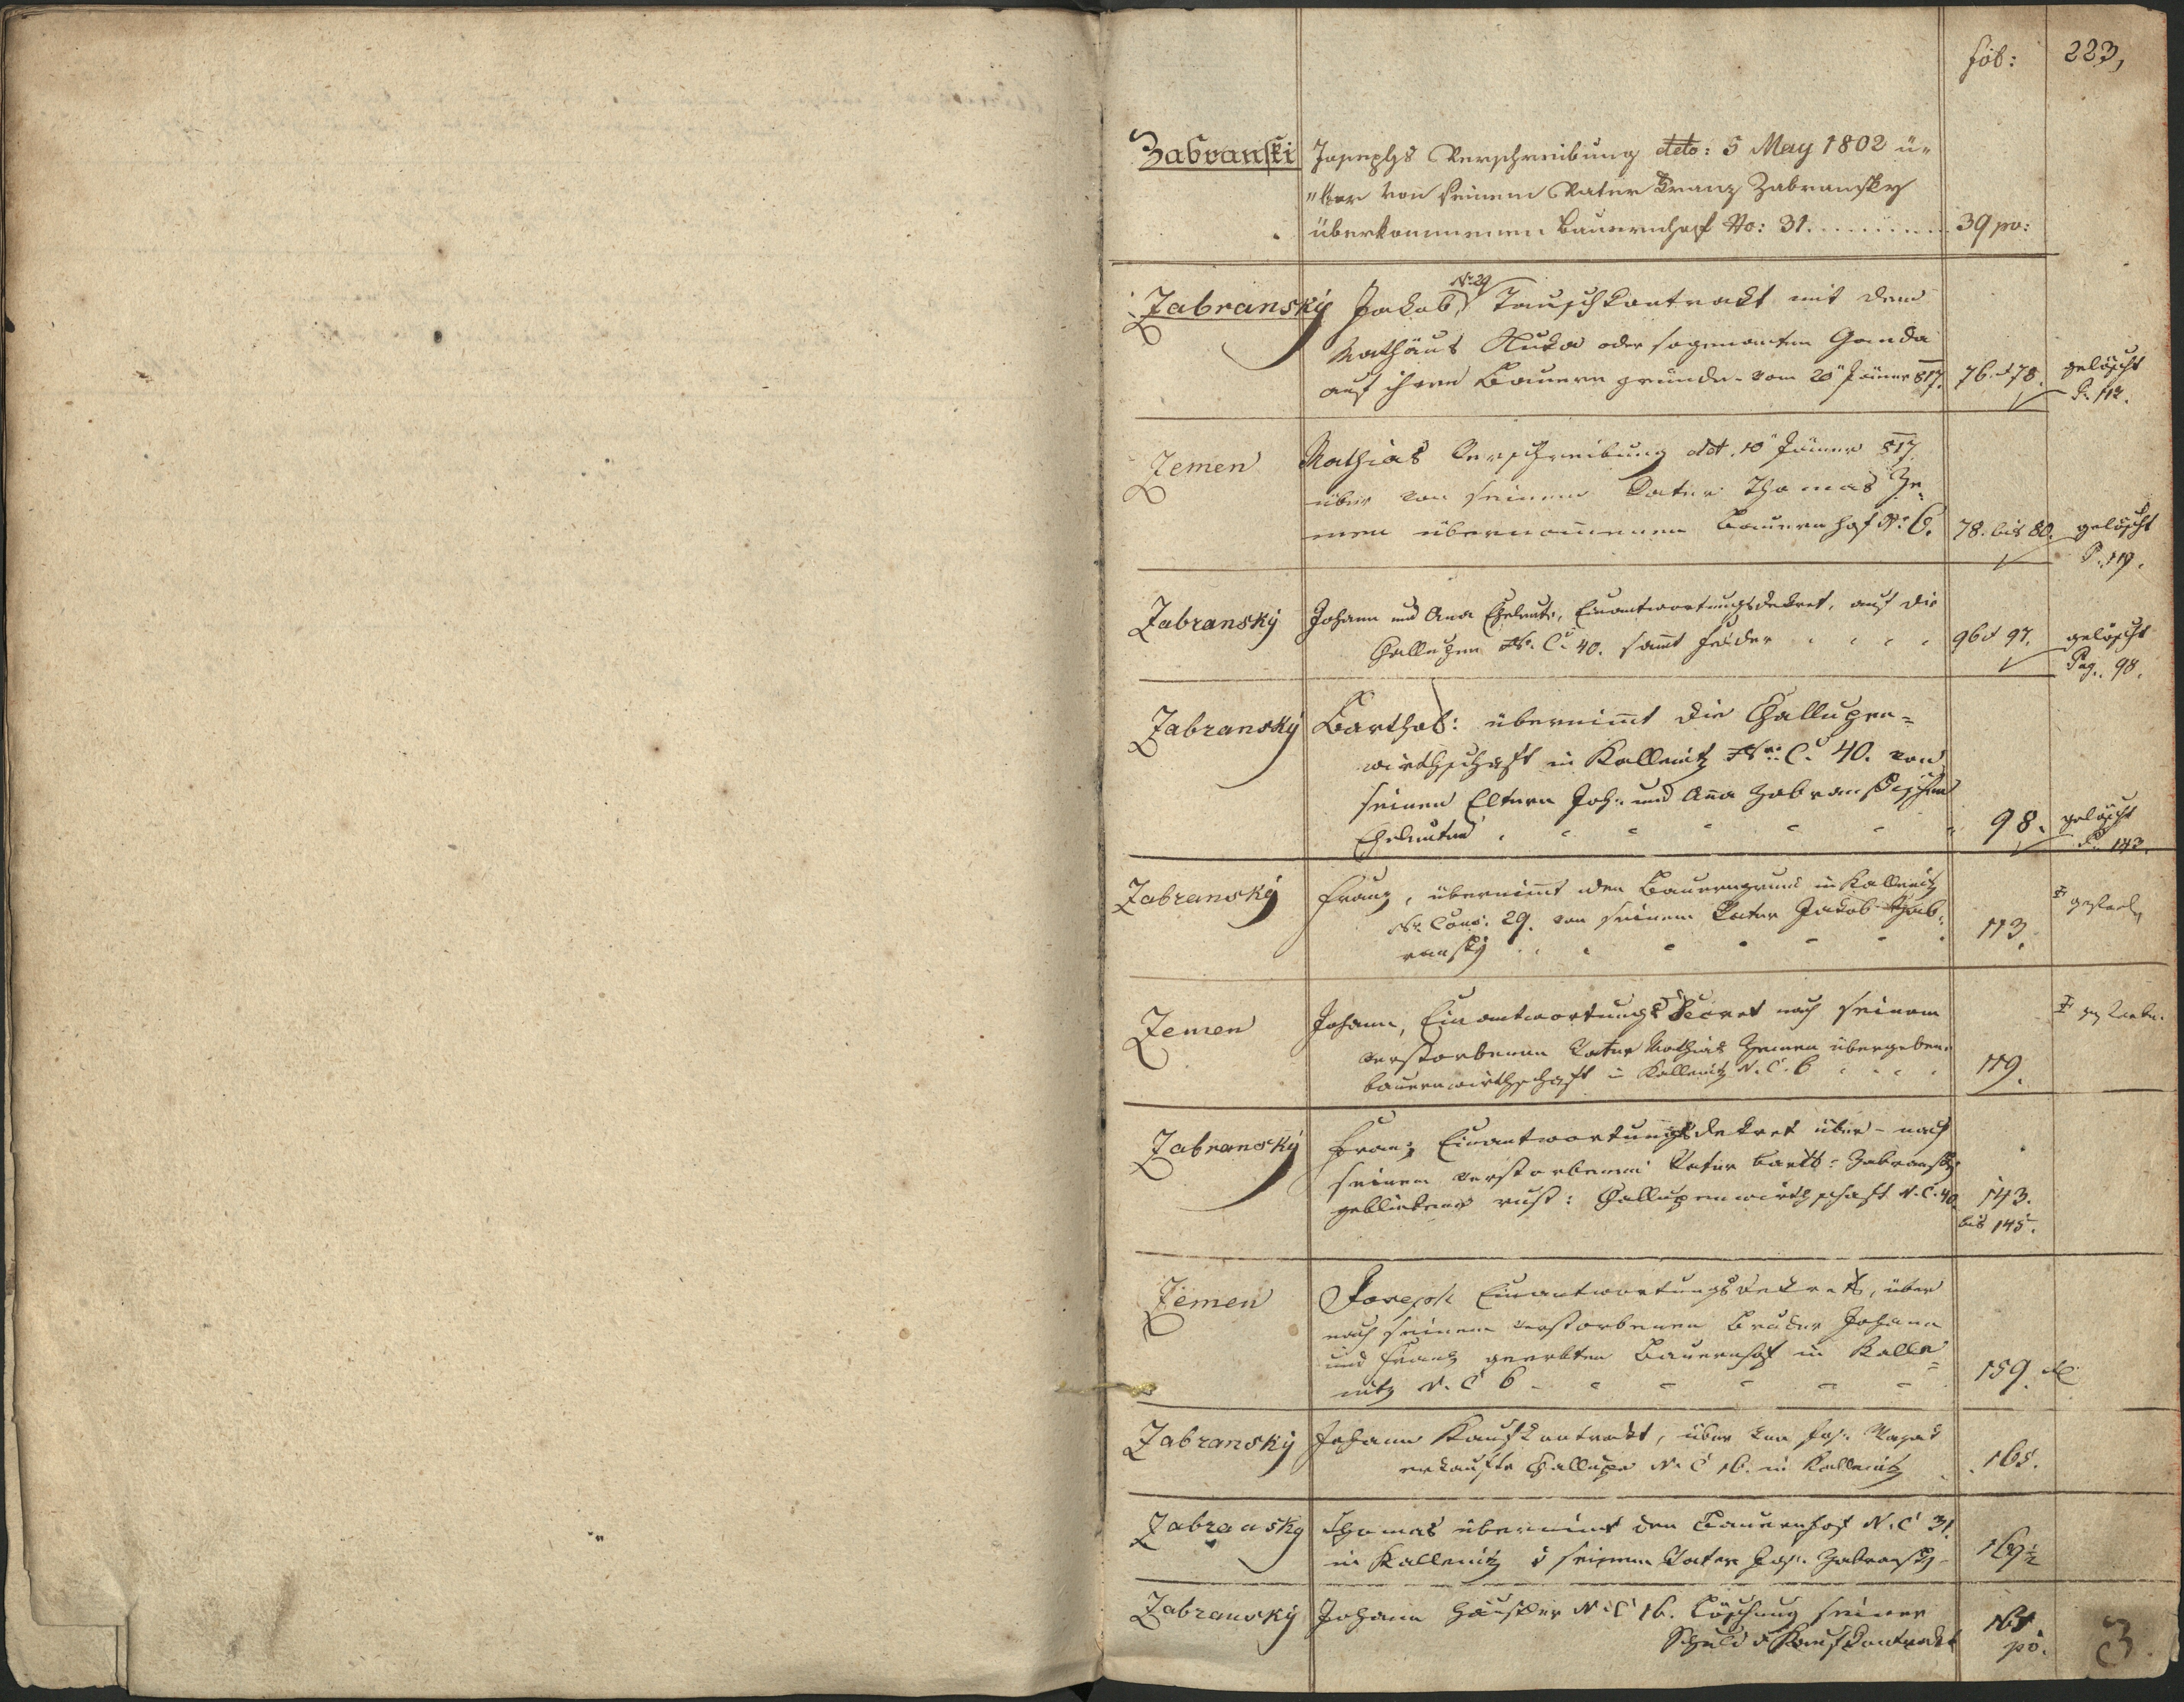 fol: 223,
Zabranski Josephs Verschreibung deto: 5 May 1802 ü„
„ber von seinem Vater Franz Zabransky
überkommenen Bauernhof No: 31. . . . . . . . . . 39 po:
Zabranskÿ Jakob, No 29 Tauschkontrakt mit dem
Mathäus oder sogenanten
auf ihren Bauern gründe vom 20n Jäner 817. 76. et 78. gelöscht
P. 112.
Zemen Mathias Verschreibung ddt. 10n Jäner 817
über von seinem Vater Thomas Ze„
men übernom̄enen Bauernhof No 6. 78. bis 80. gelöscht
P. 119.
Zabranskÿ Johann und Ana Eheleute, Einantwortungsdekret, auf die
Challupen No. C. 40. sam̄t Felder 96 et 97. gelöscht
Pag. 98.
Zabranskÿ Barthol: übernim̄t die Challupen=
wirthschaft in Kallenitz Nro. C. 40. von
seinen Eltern Joh. und Ana Zabranskischen
Eheleuten 98. gelöscht
P. 143.
Zabranskÿ Franz, übernim̄t den Bauerngrund in Kallenitz
No. Cons: 29. von seinem Vater Jakob Zab„
ranskÿ 113.
Zemen Johann, Einantwortungs Decret nach seinem
verstorbenen Vater Mathias Zemen übergebene
Bauernwirthschaft in Kallenitz N. C. 6 119.
Zabranskÿ Franz Einantwortungsdekret über – nach
seinem verstorbenen Vater Barth: Zabransky
gebliebene rust: Challupenwirthschaft N. C. 40. 143.
bis 145.
Zemen Joseph Einantwortungsdekrets, über
nach seinem verstorbenen Bruder Johann
und Franz geerbten Bauernhof in Kalle=
nitz N. C 6 159.
Zabranskÿ Johann Kaufkontrakt, über von Jos.
erkaufte Challupe N. C 16. in Kallenitz 165.
Zabransky Thomas übernimt den Bauernhof N. C 31.
in Kallenitz v seinem Vater Jos. Zabransky 169½
Zabranskÿ Johann Häusler N. C 16. Löschung seiner
Schuld Kaufkontrakt 165
po.
3.